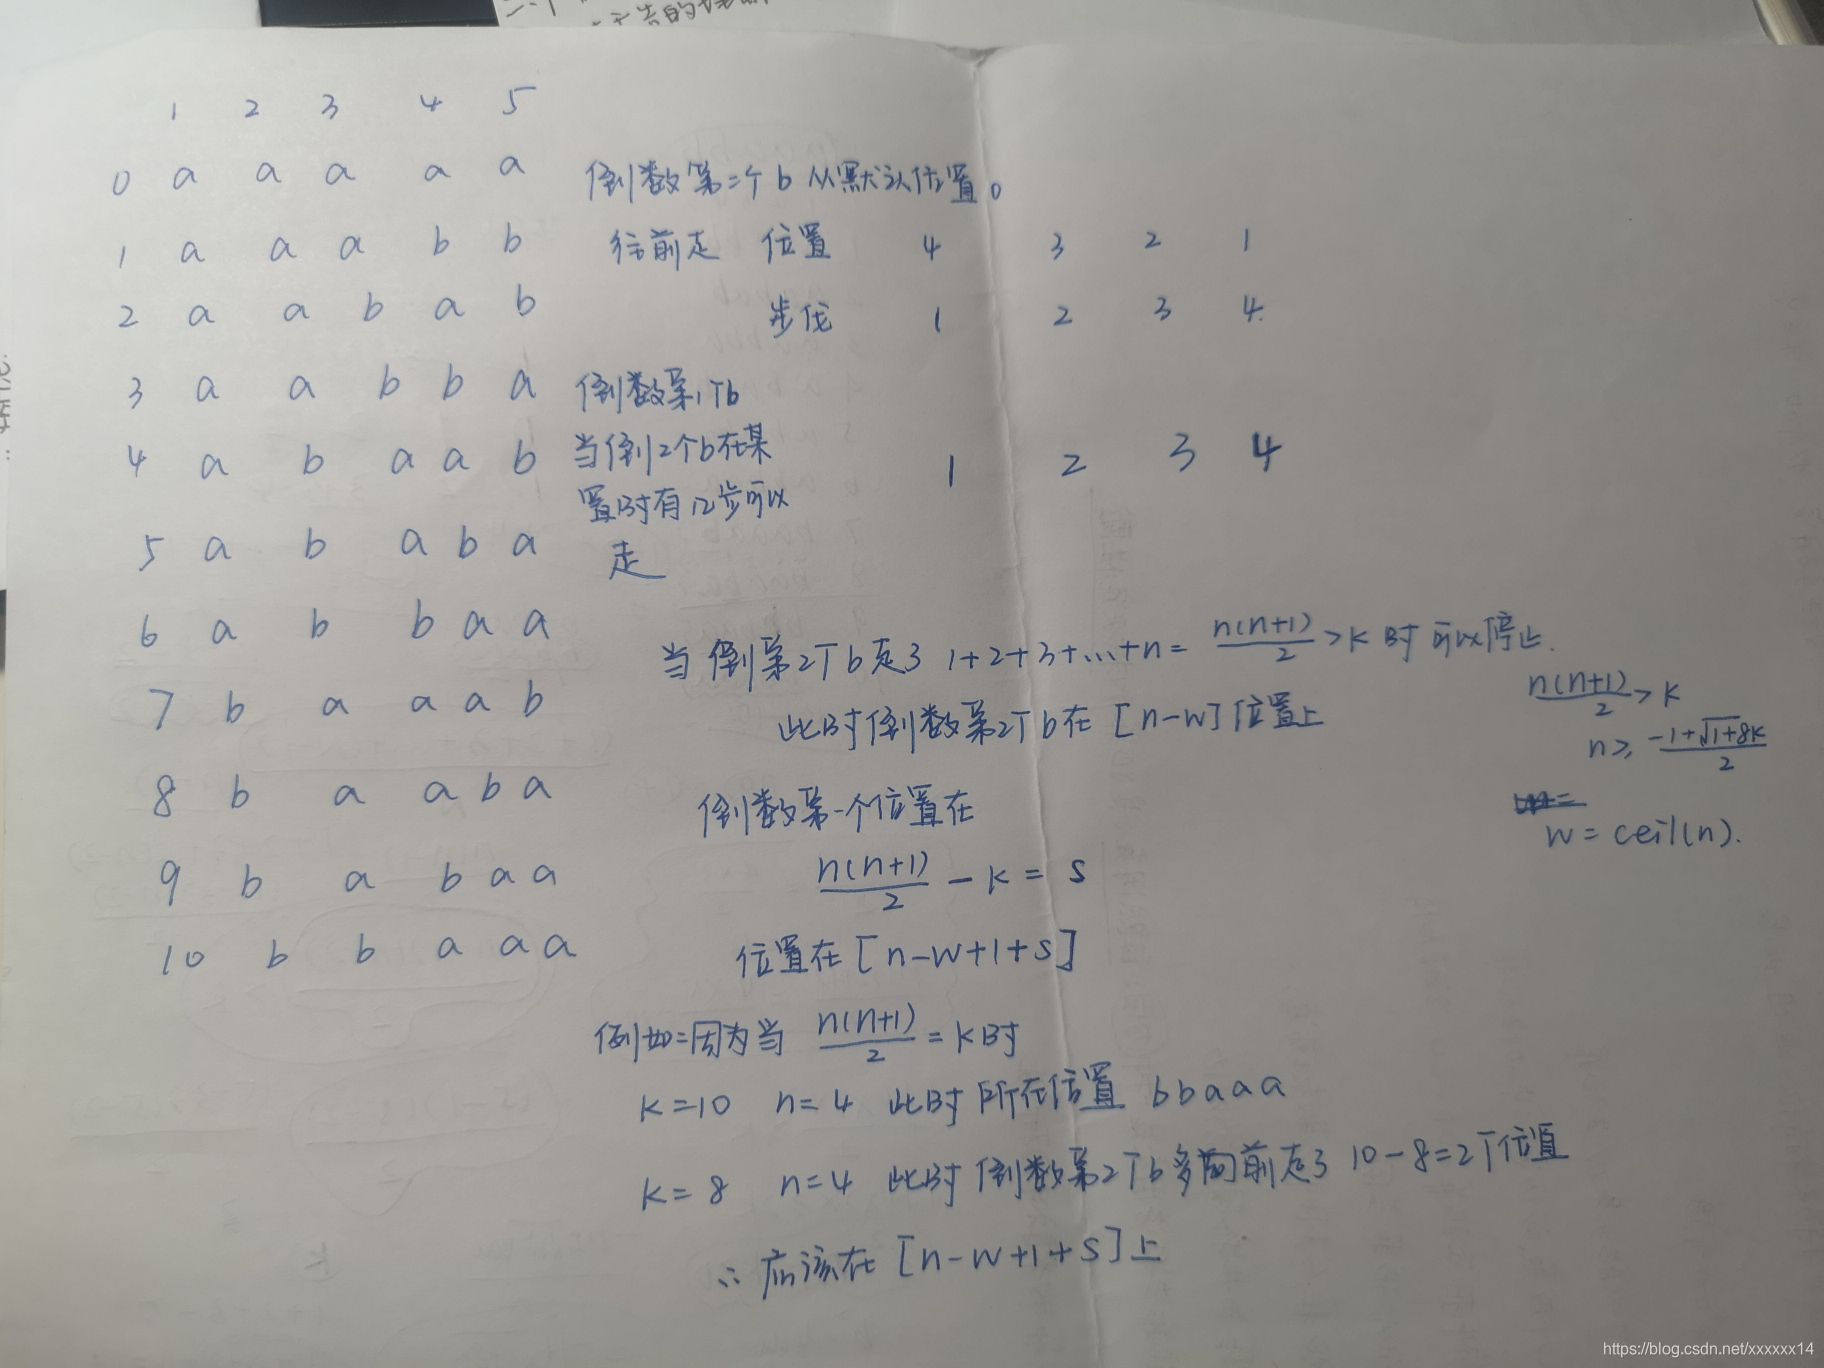 1 2 3 4 5
0 a a a a a
1 a a a b b
2 a a b a b
3 a a b b a
4 a b a a b
5 a b a b a
6 a b b a a
7 b a a a b
8 b a a b a
9 b a b a a
10 b b a a a
倒数第二个b从默认位置。
往前走 位置 4 3 2 1
步伐 1 2 3 4
倒数第1个b
当倒2个b在某
置时有 步可以
走
1 2 3 4
当倒第2个b走了 1+2+3+...+n= n(n+1)/2 >K时可以停止.
此时倒数第2个b在[n-w]位置上
n(n+1)/2 >K
n≥ (-1+√1+8K)/2
w=ceil(n).
倒数第一个位置在
n(n+1)/2 - K = S
位置在[n-w+1+S]
例如:因为当 n(n+1)/2 =K时
K=10 n=4 此时所在位置 bbaaa
K=8 n=4 此时倒数第2个b多向前走了 10-8=2个位置
∴应该在[n-w+1+S]上
https://blog.csdn.net/xxxxxx14